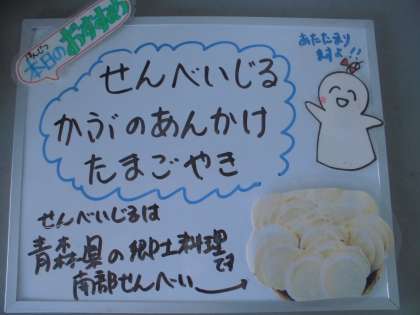 本日のおすすめ
あたたまり
ますよ!!
せんべいじる
かぶのあんかけ
たまごやき
せんべいじるは
青森県の郷土料理
です
南部せんべい→